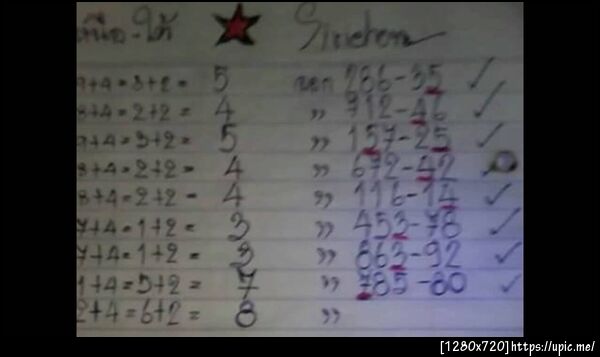 เหนือ-ใต้ ★
9+4=3+2= 5 ออก 256-35 ✓
8+4=2+2= 4 ,, 712-46 ✓
9+4=3+2= 5 ,, 157-25 ✓
8+4=2+2= 4 ,, 672-42
8+4=2+2= 4 ,, 116-14 ✓
7+4=1+2= 3 ,, 453-78 ✓
7+4=1+2= 3 ,, 863-92 ✓
1+4=5+2= 7 ,, 785-80 ✓
2+4=6+2= 8 ,,
[1280x720]https://upic.me/